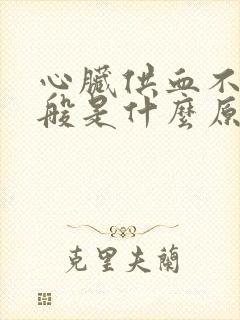 心臟供血不
般是什麼原
克里夫蘭